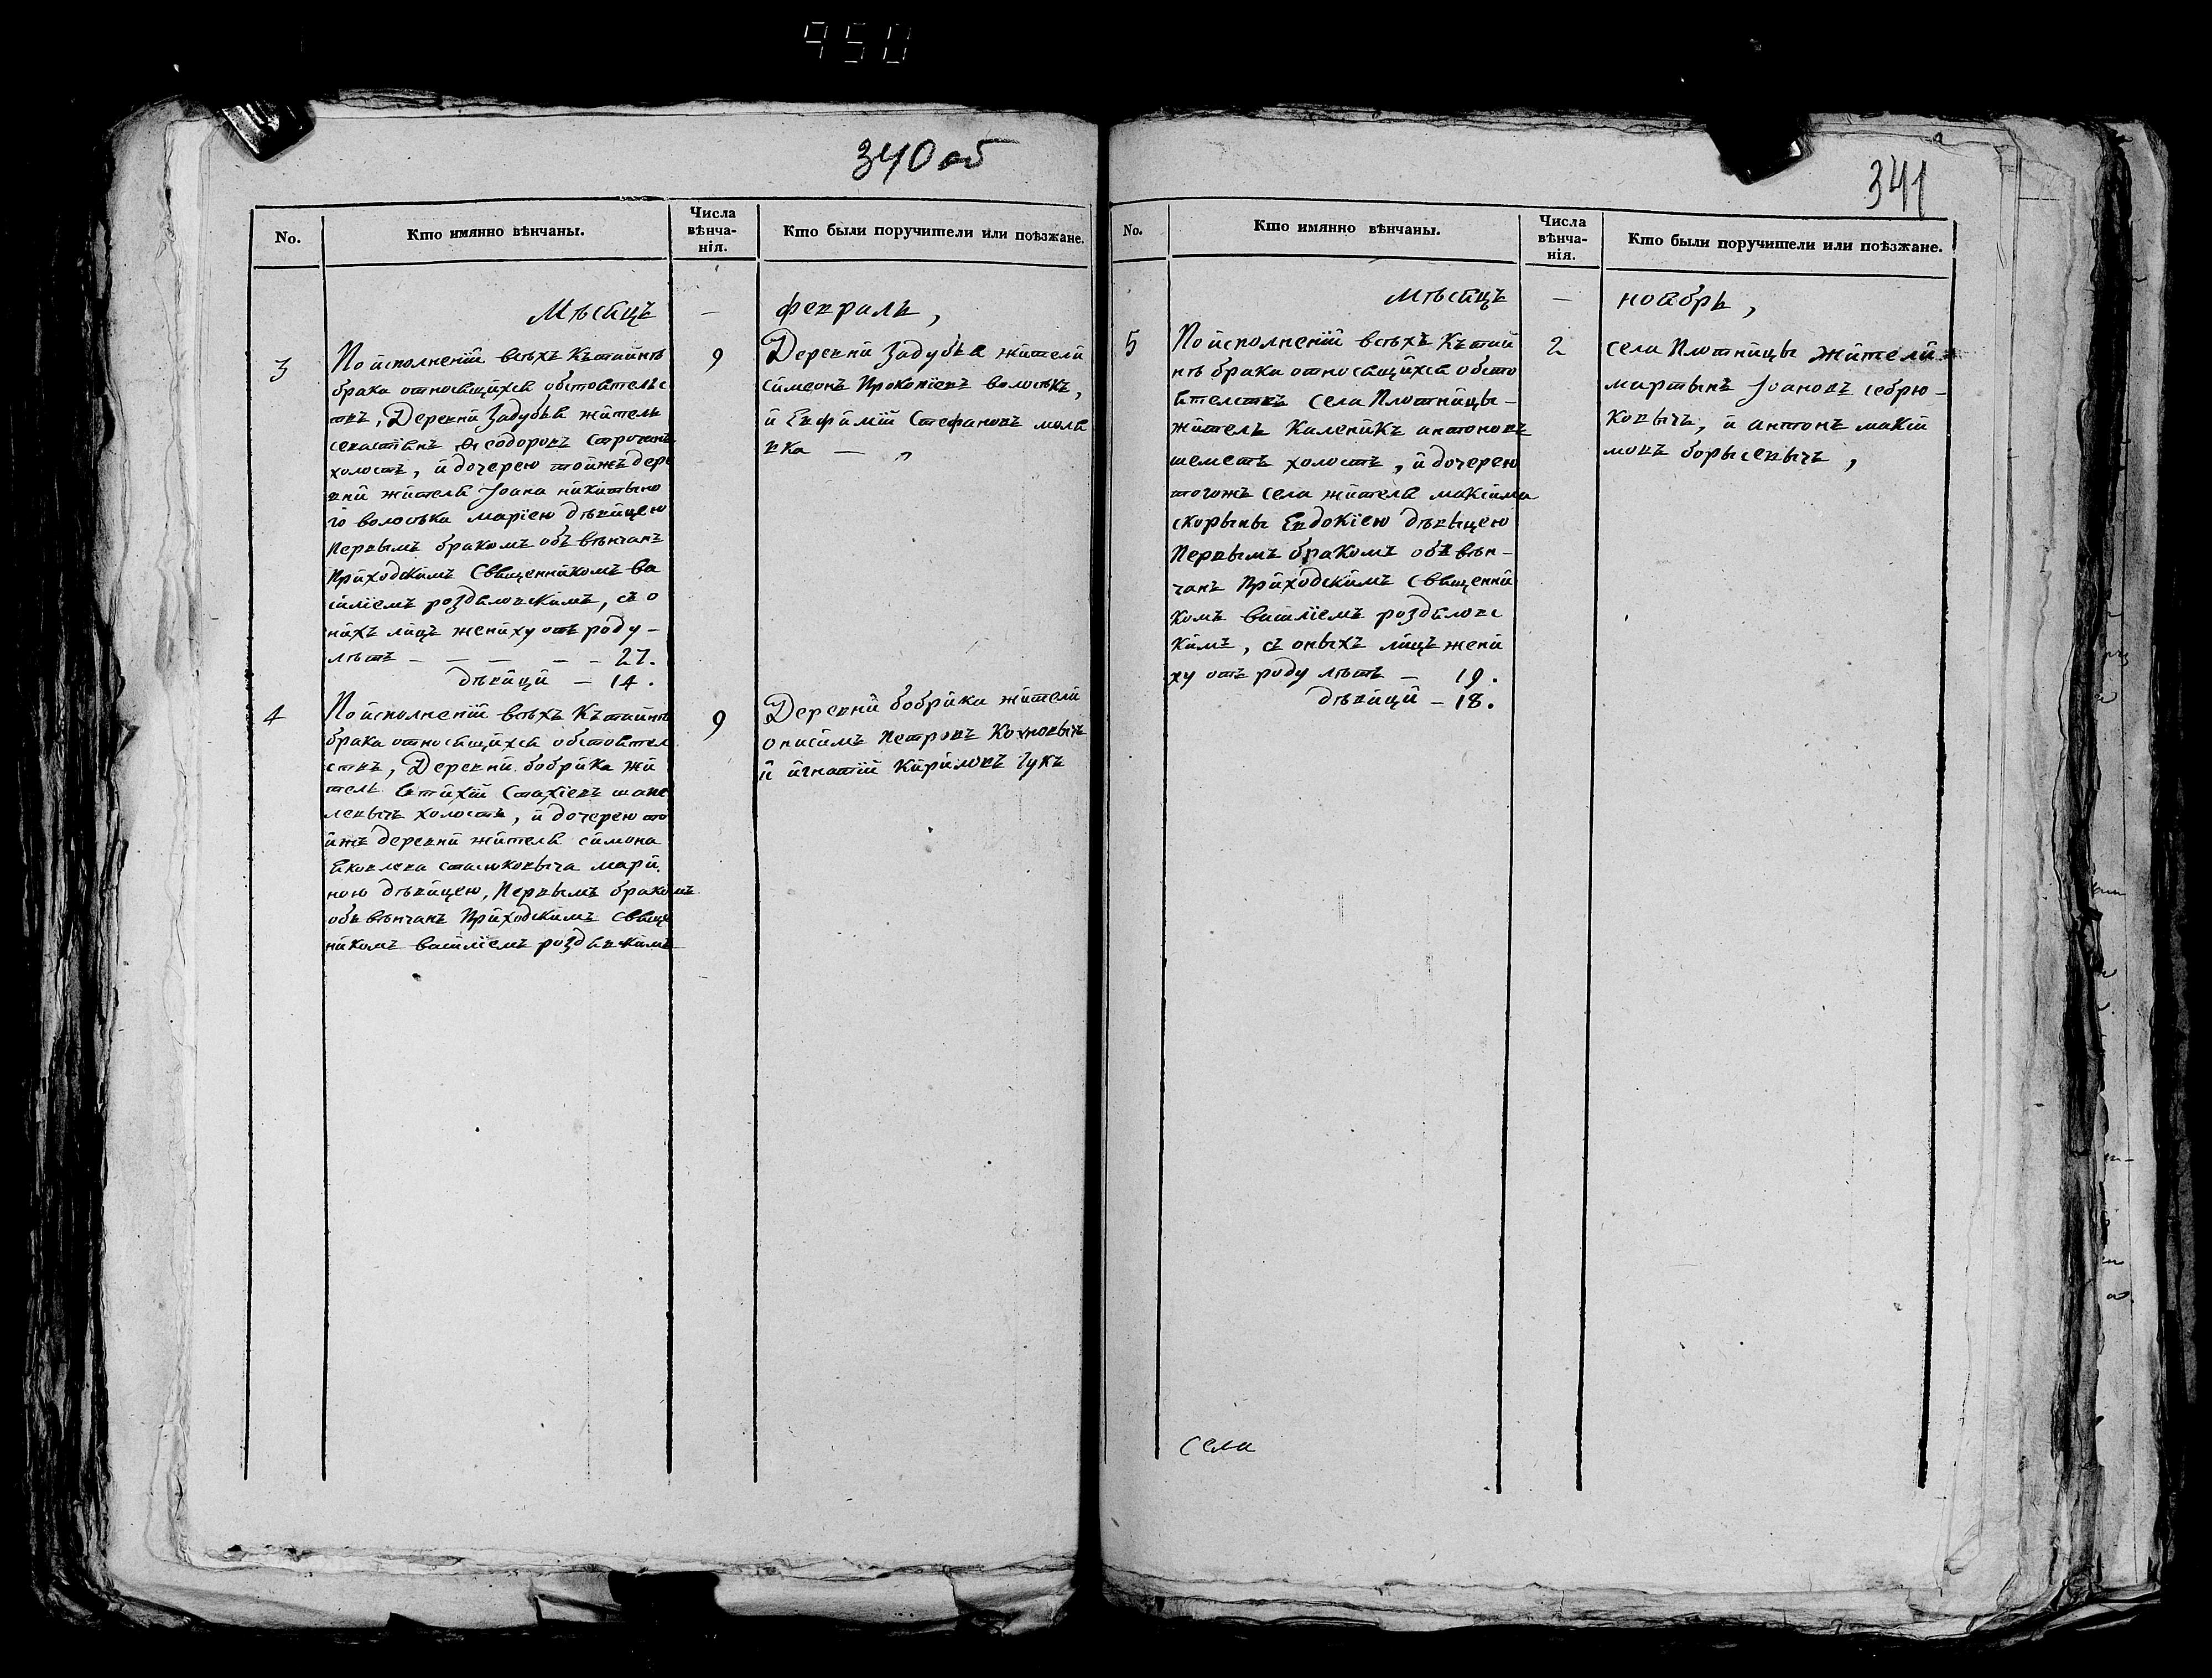 950
340 об
No.
Кто имянно вѣнчаны.
Числа
вѣнча-
нія.
Кто были поручители или поѣзжане.
Мѣсяцъ — февраль,
3
По исполненіи всѣхъ къ тайнѣ
брака относящихся обстоятельс
твъ, Деревни Задубья житель
севастіянъ Ѳеодоровъ
холостъ, и дочерею тойжъ дере
вни жителя Іоана никитыно
го волосѣка маріею дѣвицею
первымъ бракомъ объвѣнчанъ
приходскимъ священникомъ ва
силіемъ роздяловскимъ, съ о
нихъ лицъ жениху отъ роду —
лѣтъ — — — — — 27.
дѣвици — 14.
9
Деревни Задубья жители
симеонъ Прокопіевъ волосѣкъ,
и Евфимій Стефановъ моля
вка — „
4
По исполненіи всѣхъ къ тайнѣ
брака относящихся обстоятел
ствъ, Деревни бобрика жи
тель Стахіевъ
холостъ, и дочерею то
йжъ деревни жителя симона
Яковлева стасюковыча мари
ною дѣвицею, первымъ бракомъ
объвѣнчанъ приходскимъ свяще
никомъ василіемъ
9
Деревни бобрика жители
онисимъ петровъ
и игнатій кириловъ
341
No.
Кто имянно вѣнчаны.
Числа
вѣнча-
нія.
Кто были поручители или поѣзжане.
Мѣсяцъ — ноябрь,
5
По исполненіи всѣхъ къ тай
нѣ брака относящихся обсто
ятелствъ села Плотницы —
жителъ Каленикъ антоновъ
шеметъ холостъ, и дочерею
тогожъ села жителя максима
скорыны Евдокіею дѣвыцею
первымъ бракомъ объвѣн-
чанъ приходскимъ священни
комъ василіемъ роздяловс
кимъ, съ оныхъ лицъ жени
ху отъ роду лѣтъ — 19.
дѣвици — 18.
2
села Плотницы жители
мартынъ Іоановъ себрю-
ковычъ, и антонъ макси
мовъ борысевычъ,
села